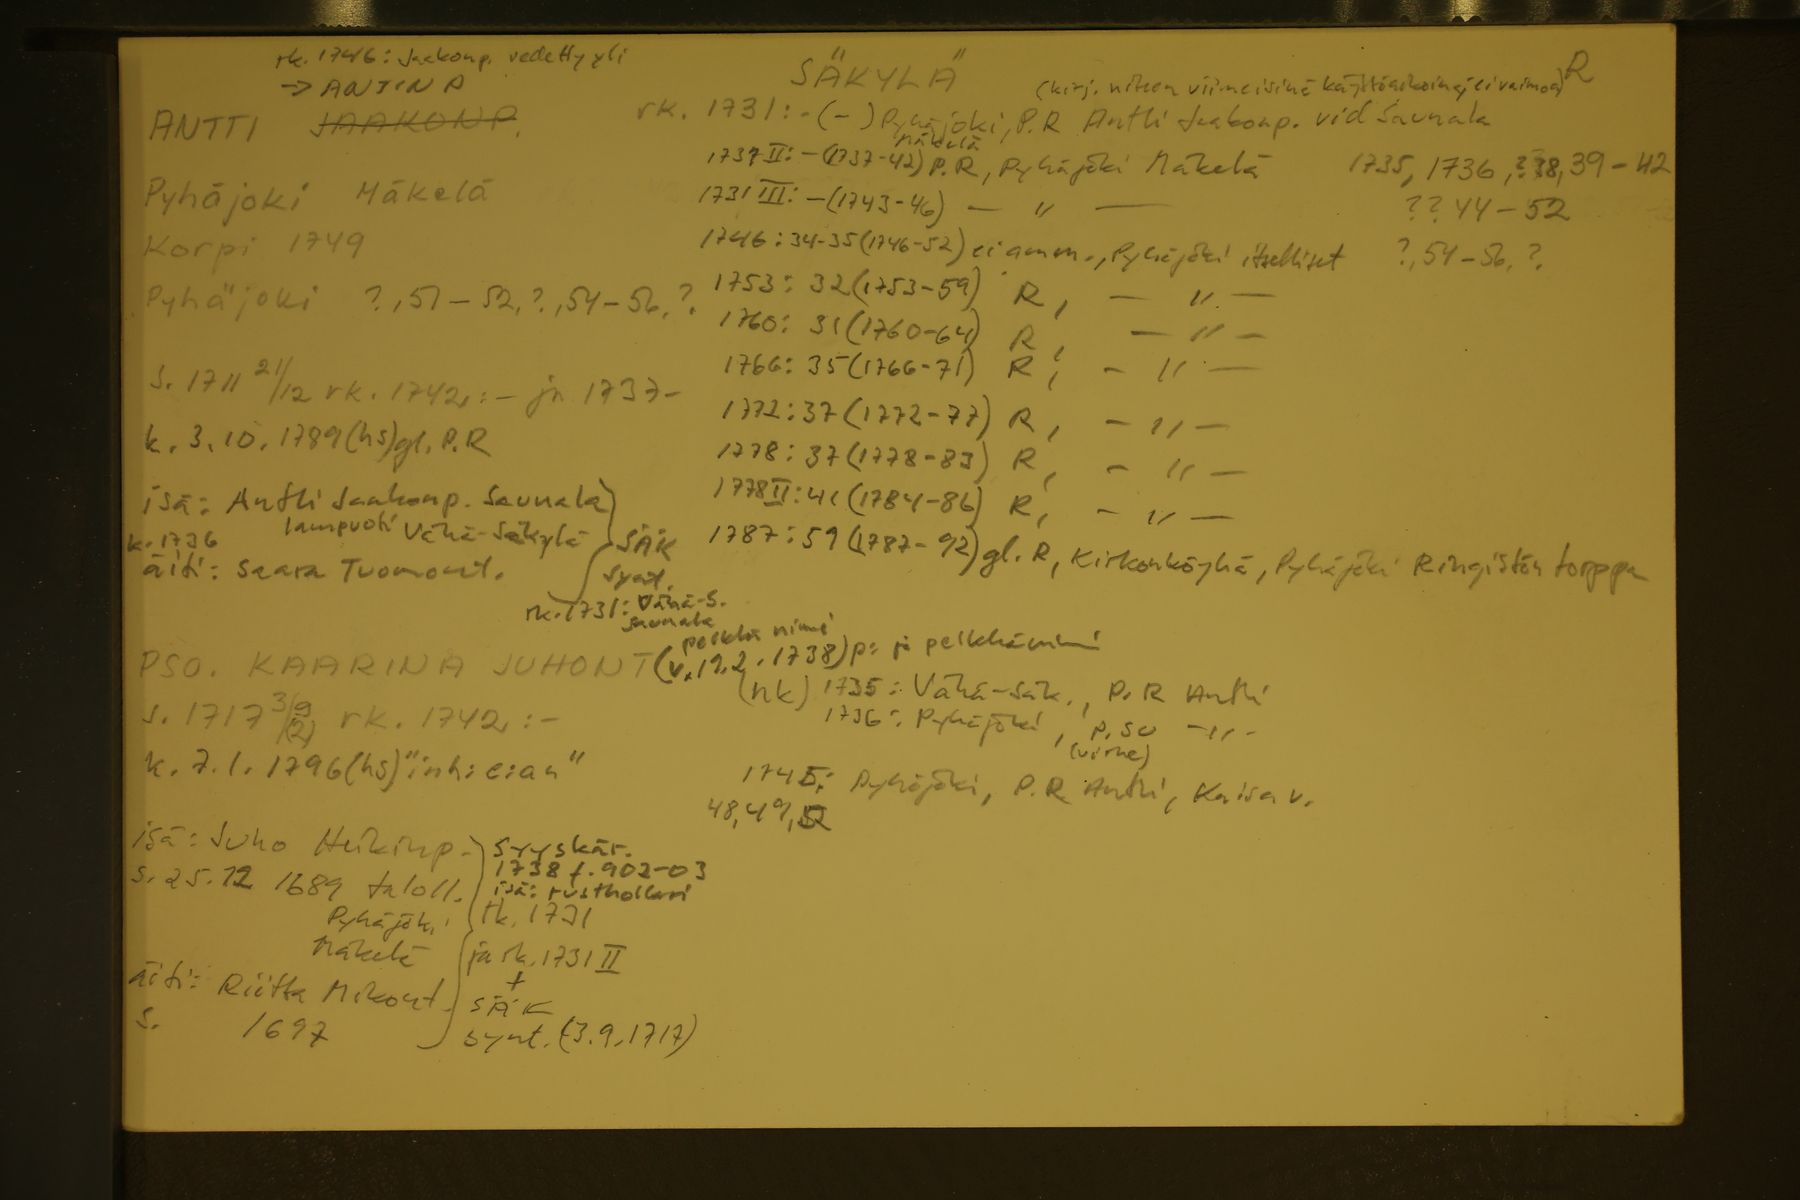 rk. 1746: Jaakonp. vedetty yli
→ ANTINP
SÄKYLÄ
R
(kirj. niteen viimeisinä käyttöaikoina, ei vaimoa)
ANTTI JAAKONP.
rk. 1731: - (-) Pyhäjoki, P.R Antti Jaakonp. vid Saunala
Mäkelä
1731 II: - (1737-42) P.R, Pyhäjoki Mäkelä 1735, 1736, ?38, 39-42
Pyhäjoki Mäkelä
1731 III: - (1743-46) — " — ?? 44-52
Korpi 1749
1746: 34-35 (1746-52) ei amm., Pyhäjoki itselliset ?, 54-56, ?.
Pyhäjoki ?, 51-52, ?, 54-56, ?.
1753: 32 (1753-59) R, — " —
1760: 31 (1760-64) R, — " —
1766: 35 (1766-71) R, - " —
s. 1711 21/12 rk. 1742,: - ja 1737-
1772: 37 (1772-77) R, - " -
k. 3.10.1789 (hs) gl. P.R
1778: 37 (1778-83) R, - " -
1778 II: 41 (1784-86) R, - " —
1787: 59 (1787-92) gl. R, Kirkonköyhä, Pyhäjoki Ringistön torppa
isä: Antti Jaakonp. Saunala
lampuoti Vähä-Säkylä
k. 1736
äiti: Saara Tuomont.
SÄK
synt.
rk. 1731: Vähä-S.
Saunala
pelkkä nimi
PSO. KAARINA JUHONT (v. 19.2.1738) p: ja pelkkä nimi
(nk) 1735: Vähä-Säk., P.R Antti
s. 1717 3/9 (2) rk. 1742,: -
1736: Pyhäjoki, p. so - " -
(virhe)
k. 7.1.1796 (hs) "inh: e: an"
1745: Pyhäjoki, P.R Antti, Kaisa v.
48, 49, 52
isä: Juho Heikinp.
s. 25.12 1689 taloll.
Pyhäjoki
Mäkelä
syyskär.
1738 f. 902-03
isä: rusthollari
rk. 1731
ja rk. 1731 II
+
SÄK
synt. (3.9.1717)
äiti: Riitta Mikont.
s. 1697